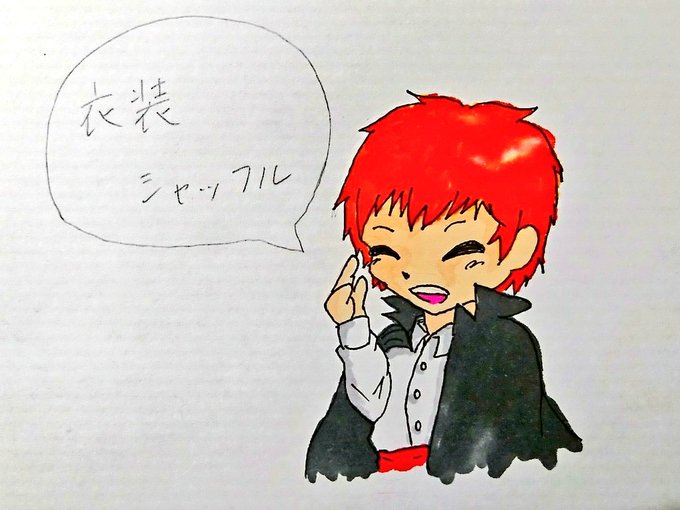 衣装
シャッフル